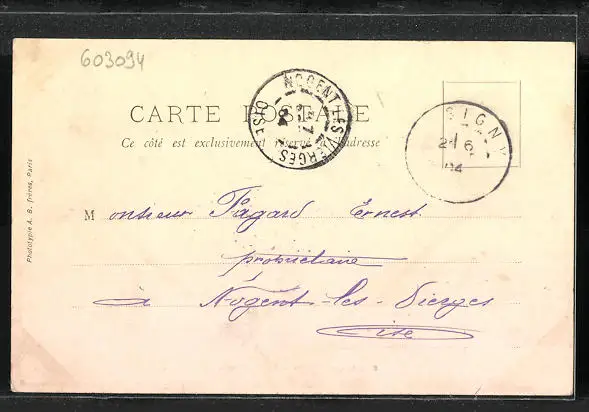 603094
CARTE POSTALE
Ce côté est exclusivement réservé à l'adresse
NOGENT LES VIERGES
OISE
04
SIGNY
2 6
04
Monsieur Fagard Ernest
propriétaire
à Nogent-les-Vierges
Oise
Phototypie A. B. frères, Paris